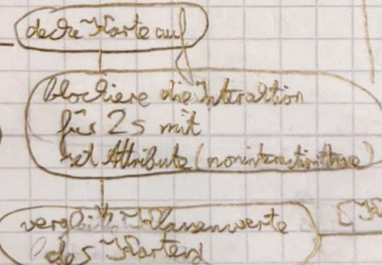 decke Karte auf
blockiere die Interaktion
für 2s mit
set Attribute (noninteractive, true)
vergleiche Namenwerte
des Karten